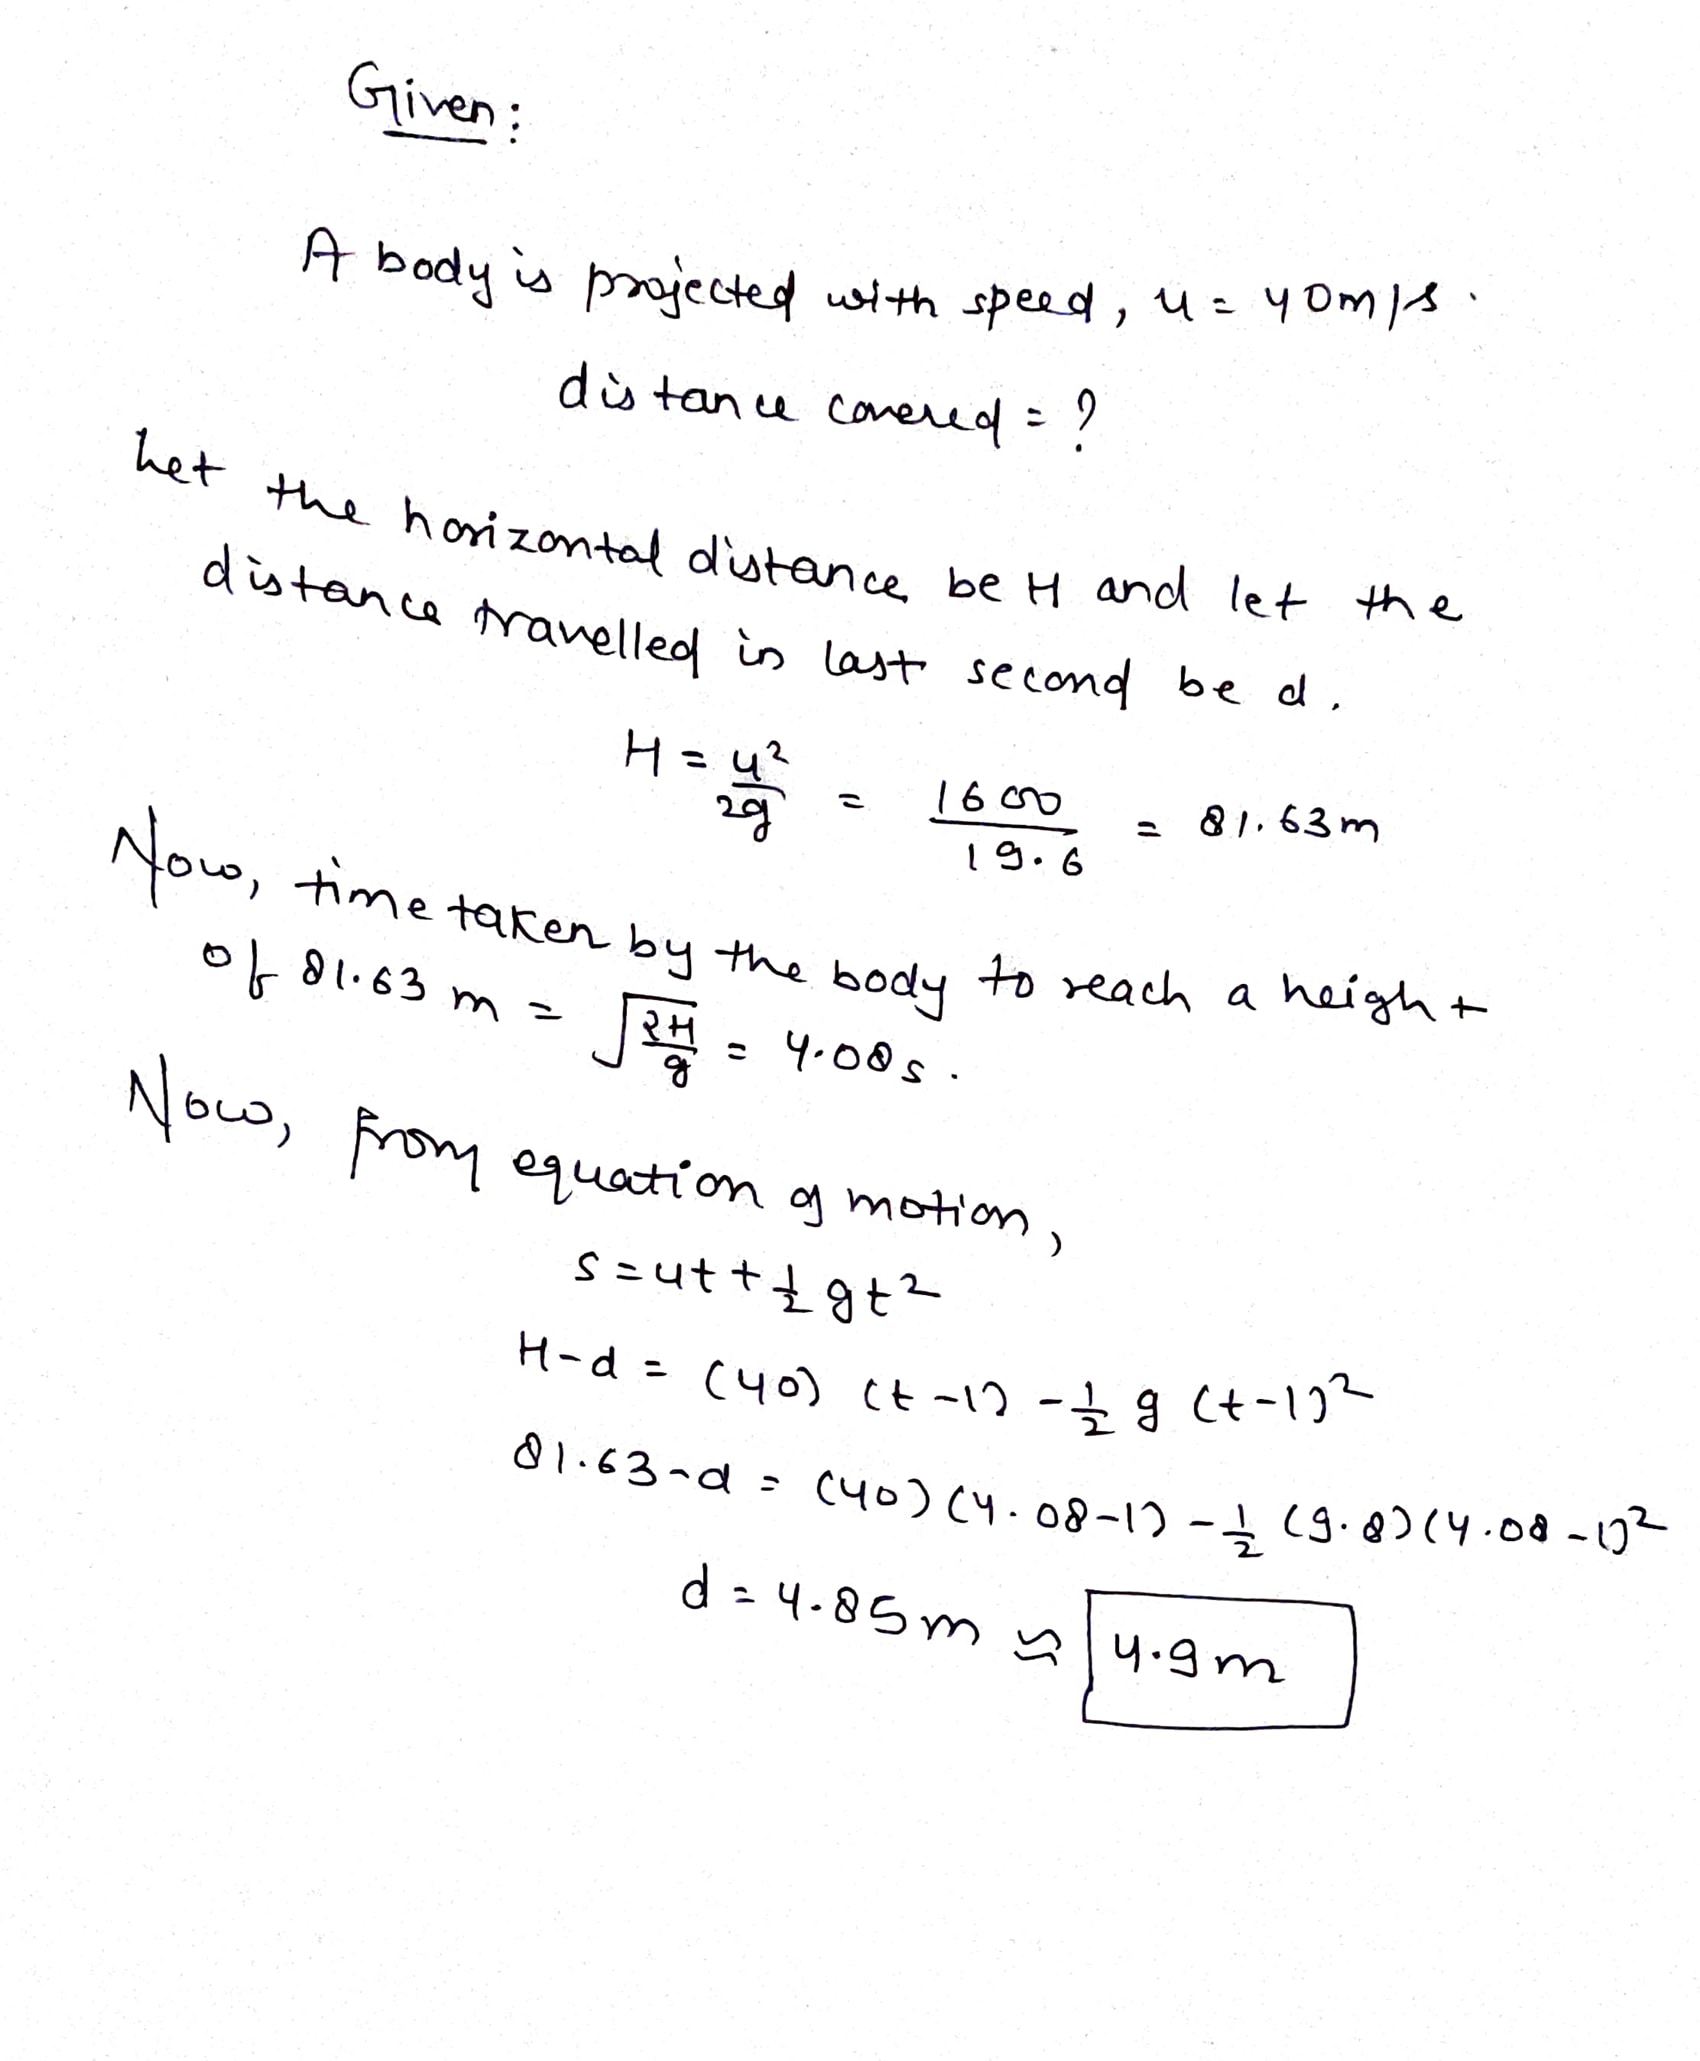 Given:
A body is projected with speed, u = 40m/s.
distance covered = ?
Let the horizontal distance be H and let the
distance travelled in last second be d.
H = u²/2g = 1600/19.6 = 81.63m
Now, time taken by the body to reach a height
of 81.63 m = √(2H/g) = 4.08s.
Now, from equation of motion,
s = ut + ½ gt²
H-d = (40) (t-1) - ½ g (t-1)²
81.63-d = (40)(4.08-1) - ½ (9.8)(4.08-1)²
d = 4.85m ≈ 4.9m